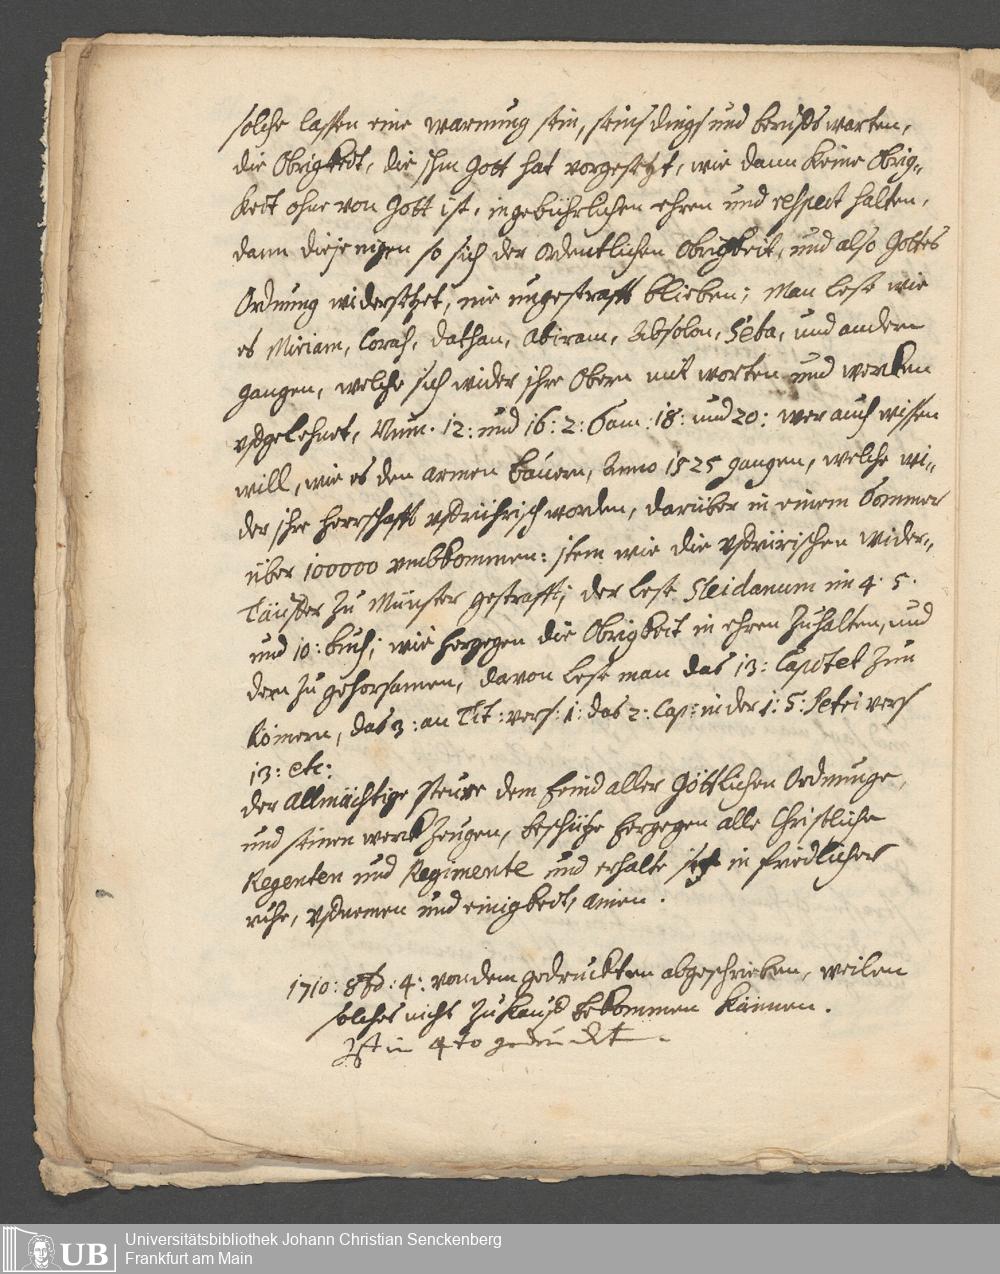 solche lassen eine warnung sein, seins dings und beruffs warten,
die Obrigkeit, die ihm Gott hat vorgesetzt, wie dann keine Obrig„
keit ohne von Gott ist, in gebührlichen ehren und respect halten,
dann diejenigen so sich der Ordentlichen Obrigkeit, und also Gottes
Ordnung widersetzet, nie ungestrafft blieben; Man lese wie
es Miriam, Corah, Dathan, Abiram, Absolon, Seba, und andern
gangen, welche sich wider ihre Obern mit worten und wercken
uffgelehnet, Num. 12: und 16: 2: Sam: 18: und 20: wer auch wissen
will, wie es den armen Bauern, Anno 1525 gangen, welche wi„
der ihre Herrschafft uffrührisch worden, darüber in einem Sommer
über 100000 umbkommen: item wie die uffrürischen wider„
Täuffer zu Münster gestrafft; der lese Sleidanum im 4. 5.
und 10: buch; wie hergegen die Obrigkeit in ehren zu halten, und
dern zu gehorsamen, davon lese man das 13: Capitel zun
Römern, das 3: an Tit: vers: 1: das 2: Cap: in der 1: S: Petri vers
13: etc:
der Allmächtige steure dem feind aller Göttlichen Ordnunge,
und seinen werckzeugen, beschütze hergegen alle Christliche
Regenten und Regimente und erhalte sie in friedlicher
ruhe, uffnemen und einigkeit, amen.
1710: 8b: 4: von dem gedruckten abgeschrieben, weilen
solches nicht zu kauff bekommen können.
Ist in 4to gedruckt.
UB
Universitätsbibliothek Johann Christian Senckenberg
Frankfurt am Main